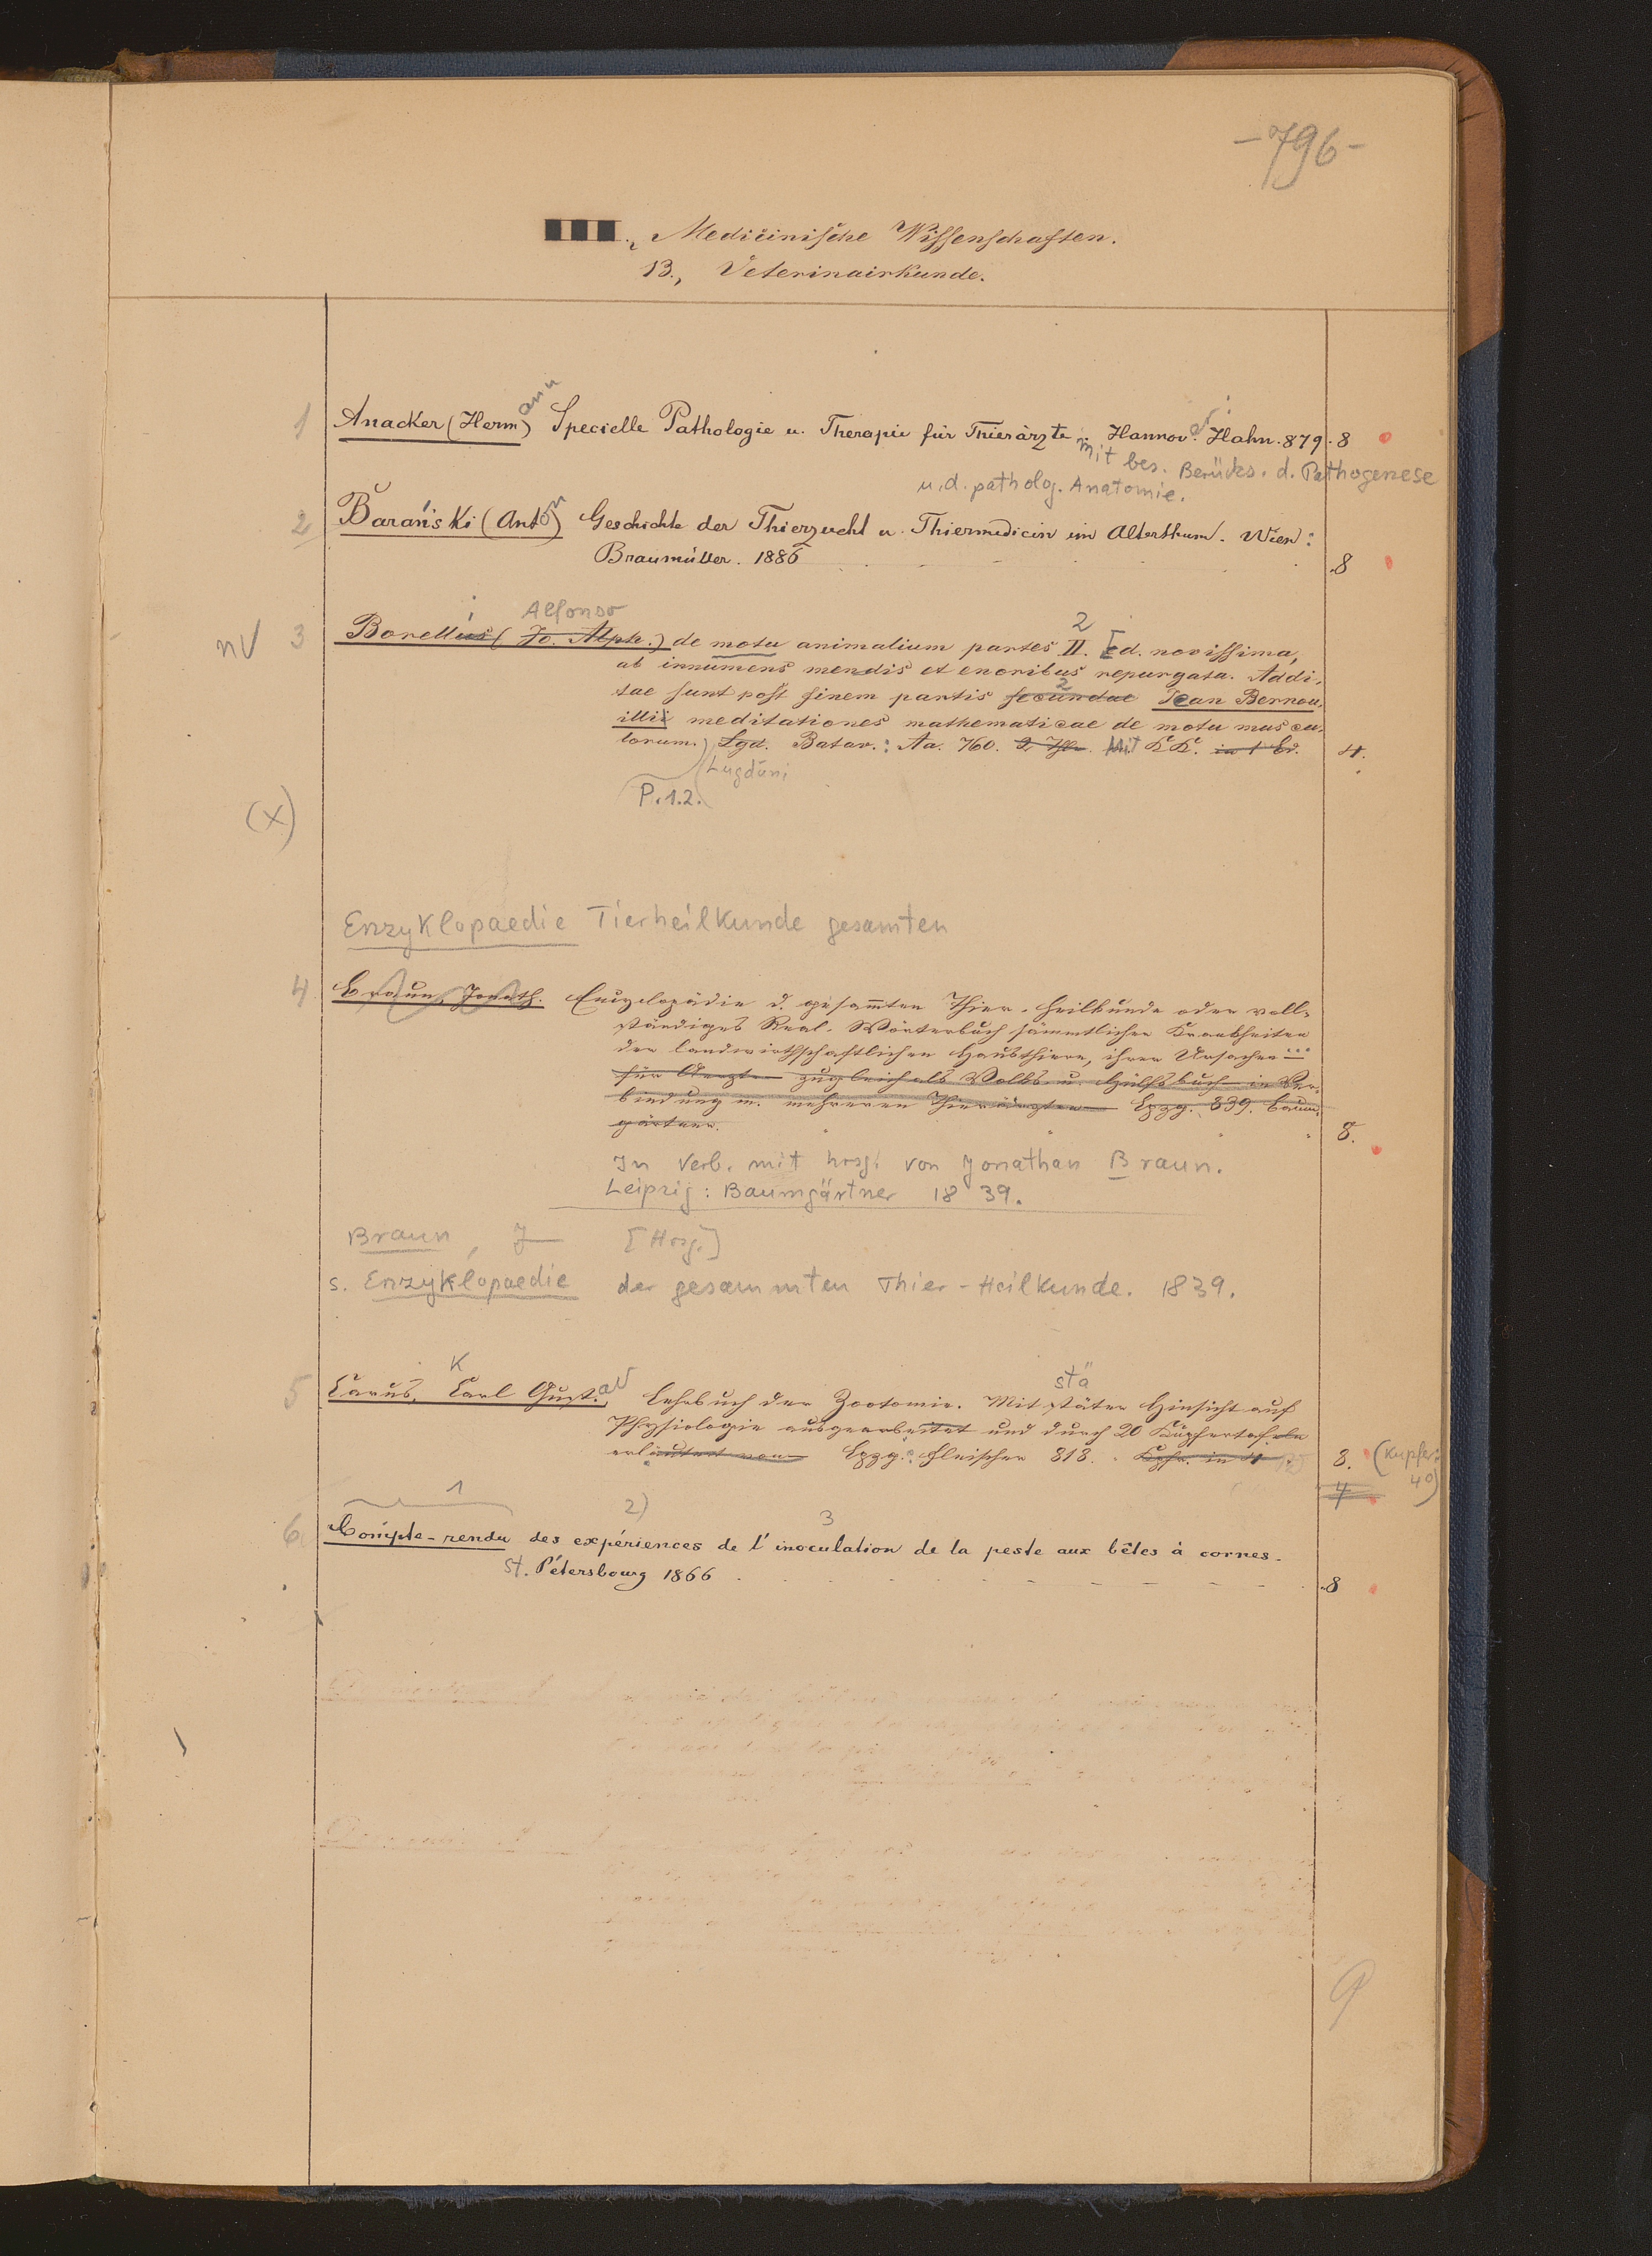 -796-
III., Medicinische Wissenschaften.
13., Veterinairkunde.
1 Anacker (Hermann) Specielle Pathologie u. Therapie für Thierärzte. Hannover: Hahn. 879. 8
mit bes. Berücks. d. Pathogenese
u. d. patholog. Anatomie.
2 Barański (Anton) Geschichte der Thierzucht u. Thiermedicin im Alterthum. Wien:
Braumüller. 1886 8
Alfonso 2
nv 3 Borellius (Jo. Alph.) de motu animalium partes II. Ed. novissima,
ab innumeris mendis et erroribus repurgata. Addi-
tae sunt post finem partis secundae 2 Jean Bernou-
illii meditationes mathematicae de motu muscu-
lorum. Lgd. Batav.: Aa. 760. 2 Thle. Mit KK. in 1 Bd. 4.
Lugduni
P. 1.2.
(x)
Enzyklopaedie Tierheilkunde gesamten
4 Braun, Jonath. Encyclopädie d. gesam̅ten Thier-Heilkunde oder voll-
ständiges Real-Wörterbuch sämmtlicher Krankheiten
der landwirthschaftlichen Hausthiere, ihrer Ursachen ...
für Aerzte zugleich als Volks- u. Hülfsbuch in Ver-
bindung m. mehreren Thierärzten Lpzg. 839. Baum-
gärtner. 8.
In Verb. mit hrsg. von Jonathan Braun.
Leipzig: Baumgärtner 1839.
Braun, J [Hrsg.]
s. Enzyklopaedie der gesammten Thier-Heilkunde. 1839.
K stä
5 Carus, Carl Gustav Lehrbuch der Zootomie. Mit stäter Hinsicht auf
Physiologie ausgearbeitet und durch 20 Kupfertafeln
erläutert von Lpzg.: Fleischer 818. Kpfr. in 4 8. (Kupfer:
4 4°)
1 2) 3
6 Compte-rendu des expériences de l'inoculation de la peste aux bêtes à cornes.
St. Pétersbourg 1866 8
9